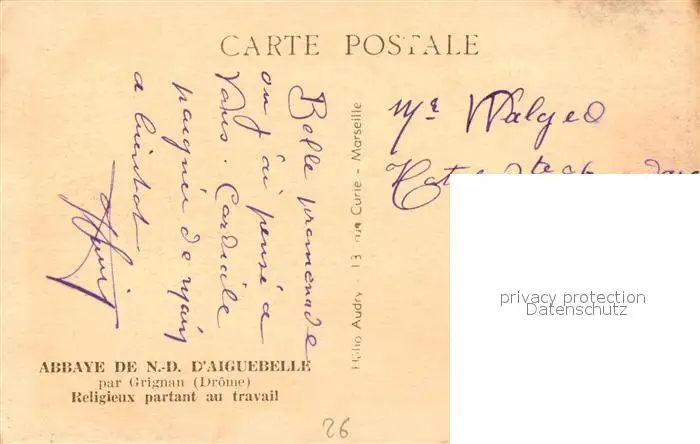 CARTE POSTALE
Belle promenade
où j'ai pensé à
vous. Cordiale
poignée de main
a bientôt
Mr Walged
Hélio Audry - 13, rue Curie - Marseille
privacy protection
Datenschutz
ABBAYE DE N.-D. D'AIGUEBELLE
par Grignan (Drôme)
Religieux partant au travail
26